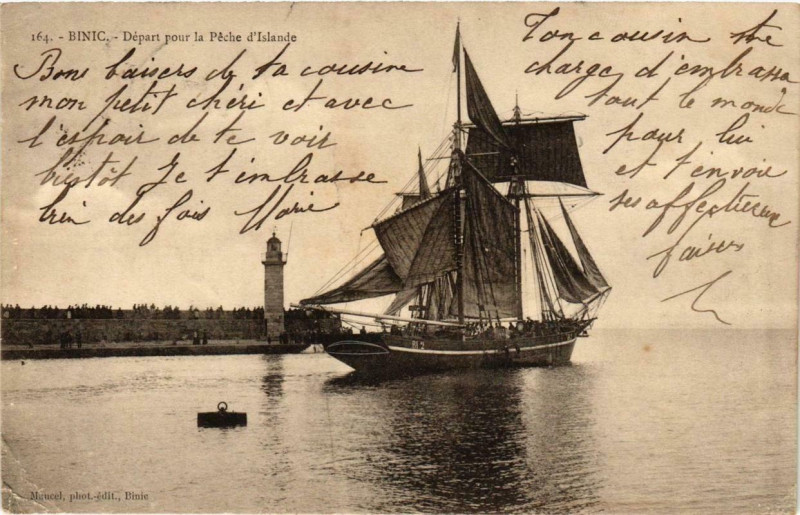 164. - BINIC. - Départ pour la Pêche d'Islande
Bons baisers de ta cousine
mon petit chéri et avec
l'espoir de te voir
bientôt Je t'embrasse
bien des fois Marie
Ton cousin me
charge d'embrasser
tout le monde
pour lui
et t'envoie
ses affectueux
baisers
Muucel, phot.-édit., Binic